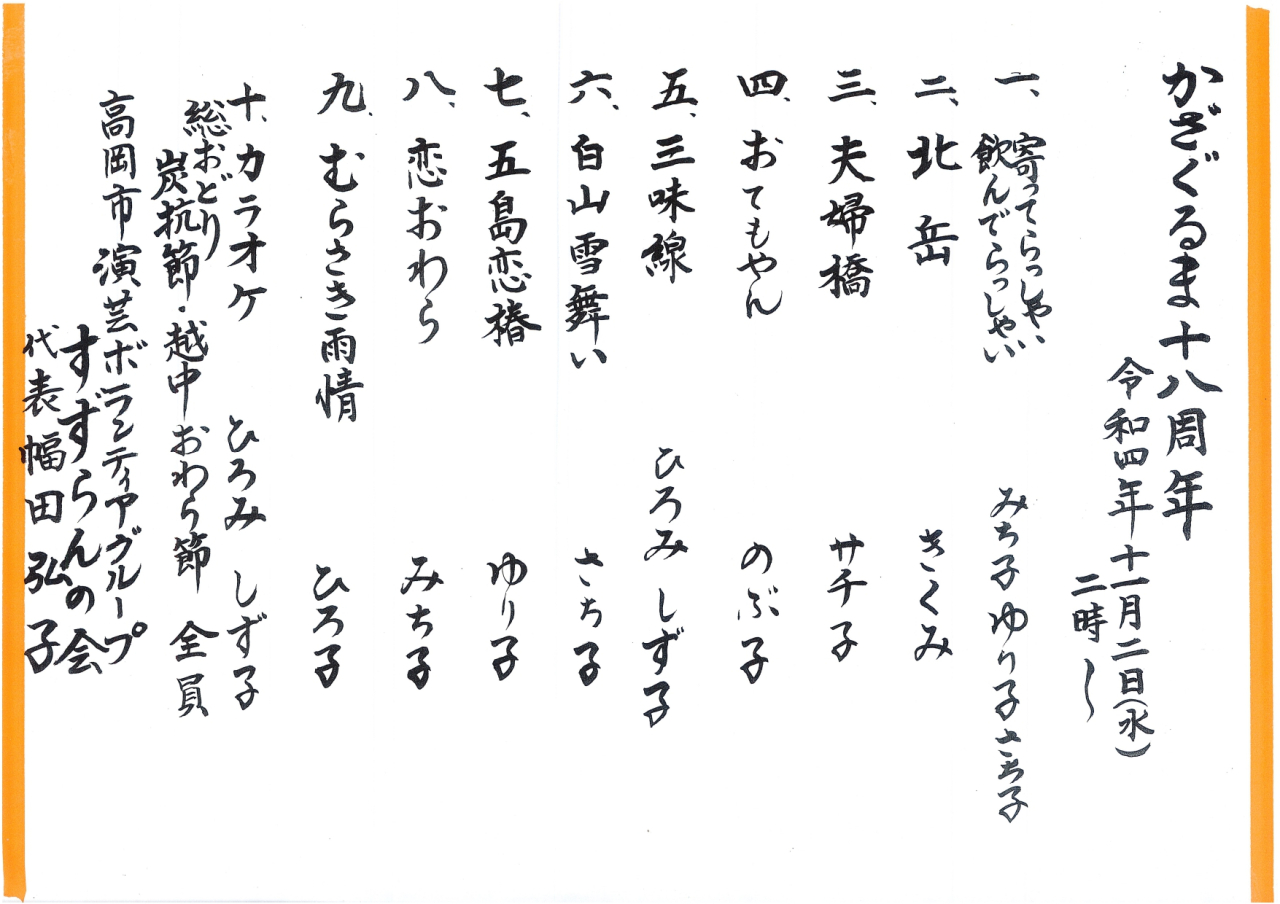 かざぐるま十八周年
令和四年十一月二日(水)
二時～
一、寄ってらっしゃい
飲んでらっしゃい みち子 ゆり子 さち子
二、北岳 きくみ
三、夫婦橋 サチ子
四、おてもやん のぶ子
五、三味線 ひろみ しず子
六、白山雪舞い さち子
七、五島恋椿 ゆり子
八、恋おわら みち子
九、むらさき雨情 ひろ子
十、カラオケ ひろみ しず子
総おどり
炭抗節・越中おわら節 全員
高岡市演芸ボランティアグループ
すずらんの会
代表 幅田弘子